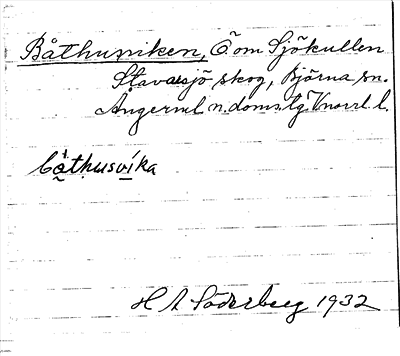 Båthusviken, Ö om Sjökullen
Stavarsjö skog, Björna sn.
Ångerml. n. doms.lg. Vnorrl. l.
båthusvíka
H A Söderberg 1932